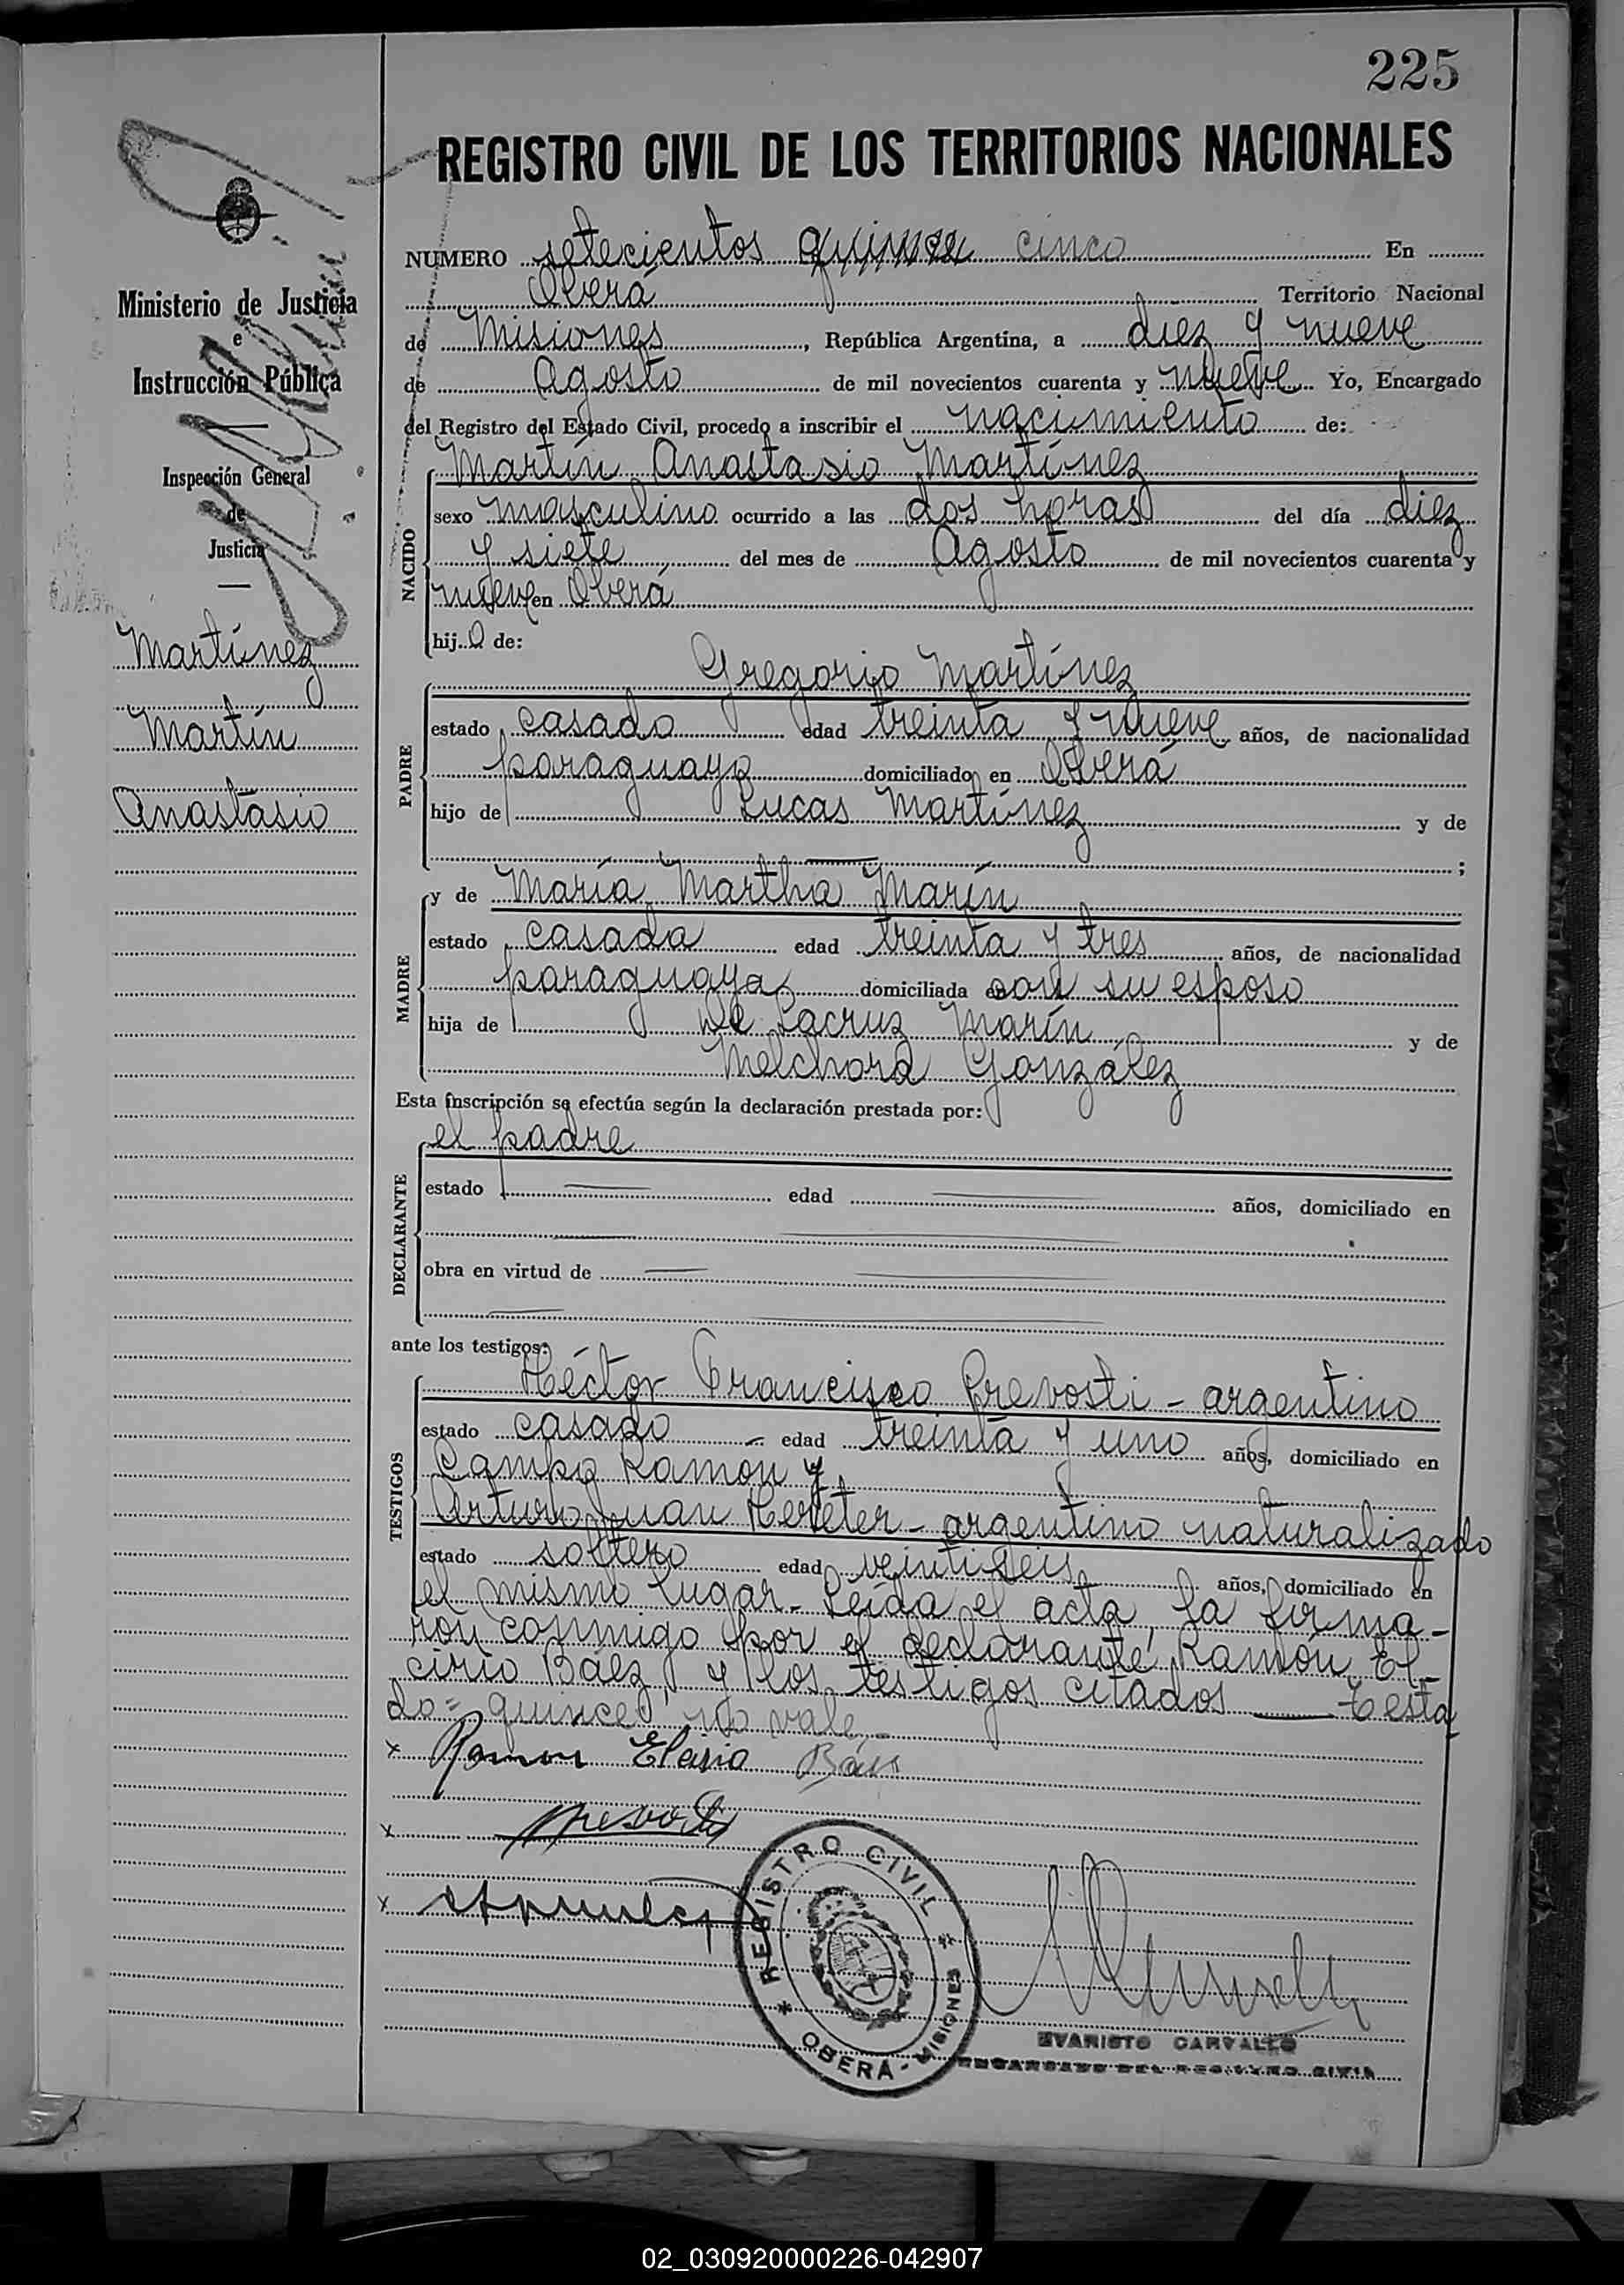 225
REGISTRO CIVIL DE LOS TERRITORIOS NACIONALES
Ministerio de Justicia
e
Instrucción Pública
Inspección General
de
Justicia
Martínez
Martín
Anastasio
NUMERO setecientos quince cinco En
Oberá Territorio Nacional
de Misiones, República Argentina, a diez y nueve
de Agosto de mil novecientos cuarenta y nueve Yo, Encargado
del Registro del Estado Civil, procedo a inscribir el nacimiento de:
NACIDO
Martín Anastasio Martínez
sexo masculino ocurrido a las dos horas del día diez
y siete del mes de Agosto de mil novecientos cuarenta y
nueve en Oberá
hijo de:
PADRE
Gregorio Martínez
estado casado edad treinta y nueve años, de nacionalidad
paraguaya domiciliado en Oberá
hijo de Lucas Martínez y de
— ;
MADRE
y de María Martha Marín
estado casada edad treinta y tres años, de nacionalidad
paraguaya domiciliada con su esposo
hija de De Lacruz Marín y de
Melchora González
Esta inscripción se efectúa según la declaración prestada por:
DECLARANTE
el padre
estado — edad — años, domiciliado en
obra en virtud de —
ante los testigos:
TESTIGOS
Héctor Francisco Prevosti - argentino
estado casado edad treinta y uno años, domiciliado en
Campo Ramon y
Arturo Juan Hereter - argentino naturalizado
estado soltero edad veintiseis años, domiciliado en
el mismo lugar - Leída el acta, la firma-
ron conmigo por el declarante, Ramón El-
cirio Báez, y los testigos citados — Testa-
do = quince, no vale.-
x Ramon Elcirio Báez
x Prevosti
x
REGISTRO CIVIL
OBERÁ - MISIONES
EVARISTO CARVALLO
ENCARGADO DEL REGISTRO CIVIL
02_030920000226-042907